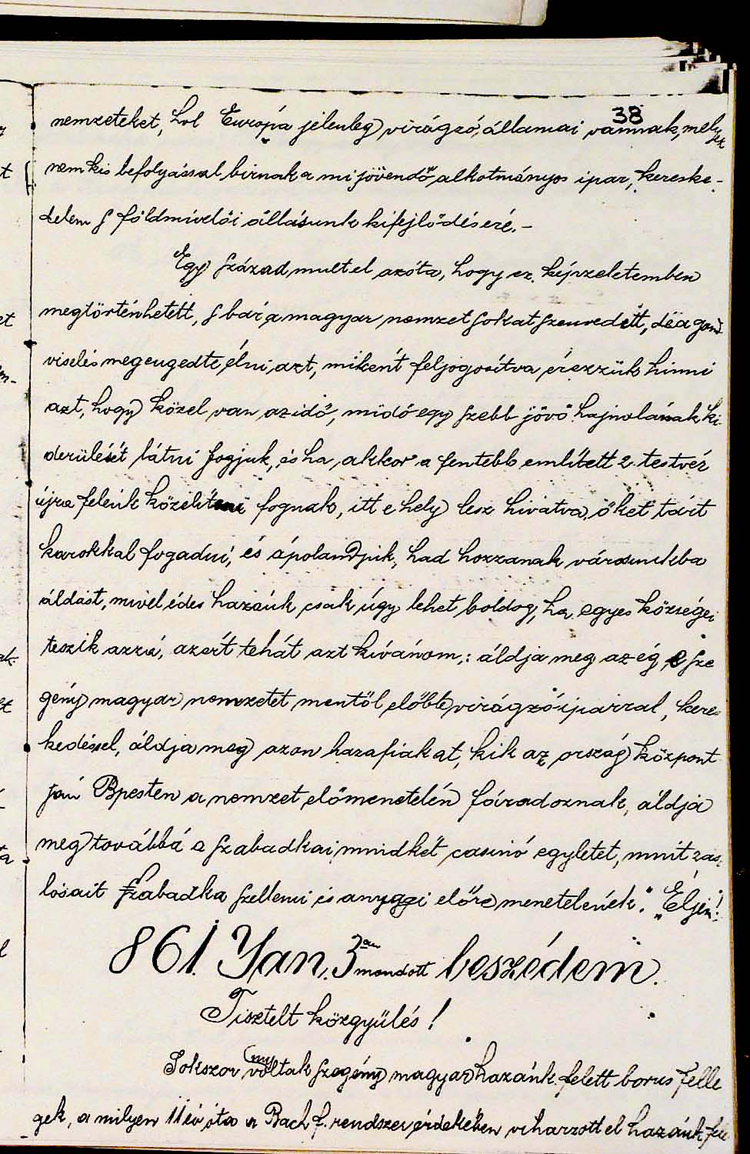 38
nemzeteket, hol Európa jelenleg virágzó államai vannak, melyek
nem kis befolyással birnak a mi jövendő alkotmányos ipar, kereske-
delem s földmivelői állásunk kifejlődésére.-
Egy század mult el azóta, hogy ez képzeletemben
megtörténhetett, s bár a magyar nemzet sokat szenvedett, de a gond
viselés megengedte élni, azt, miként feljogosítva érezzük hinni
azt, hogy közel van az idő, midő egy szebb jövő hajnalának ki-
derülését látni fogjuk, és ha, akkor a fentebb említett 2 testvér
újra felénk közelíteni fognak, itt e hely lesz hivatva őket tárt
karokkal fogadni, és ápolandjuk, had hozzanak városunkba
áldást, mivel édes hazánk csak úgy lehet boldog, ha egyes községei
teszik azzá, azért tehát azt kívánom,: áldja meg az ég e sze
gény magyar nemzetet mentől előbb virágzó iparral, keres
kedéssel, áldja meg azon hazafiakat, kik az ország központ
ján Bpesten a nemzet előmenetelén fáradoznak, áldja
meg továbbá a szabadkai mindkét casinó egyletet, mint zás
lósait Szabadka szellemi és anyagi előre menetelének. "Éljen!
861 Jan. 3án mondott beszédem.
Tisztelt közgyülés!
Sokszor voltak szegény magyar hazánk felett borus felle
gek, a milyen 11 év óta a Bach f. rendszer érdekében viharzott el hazánk fe